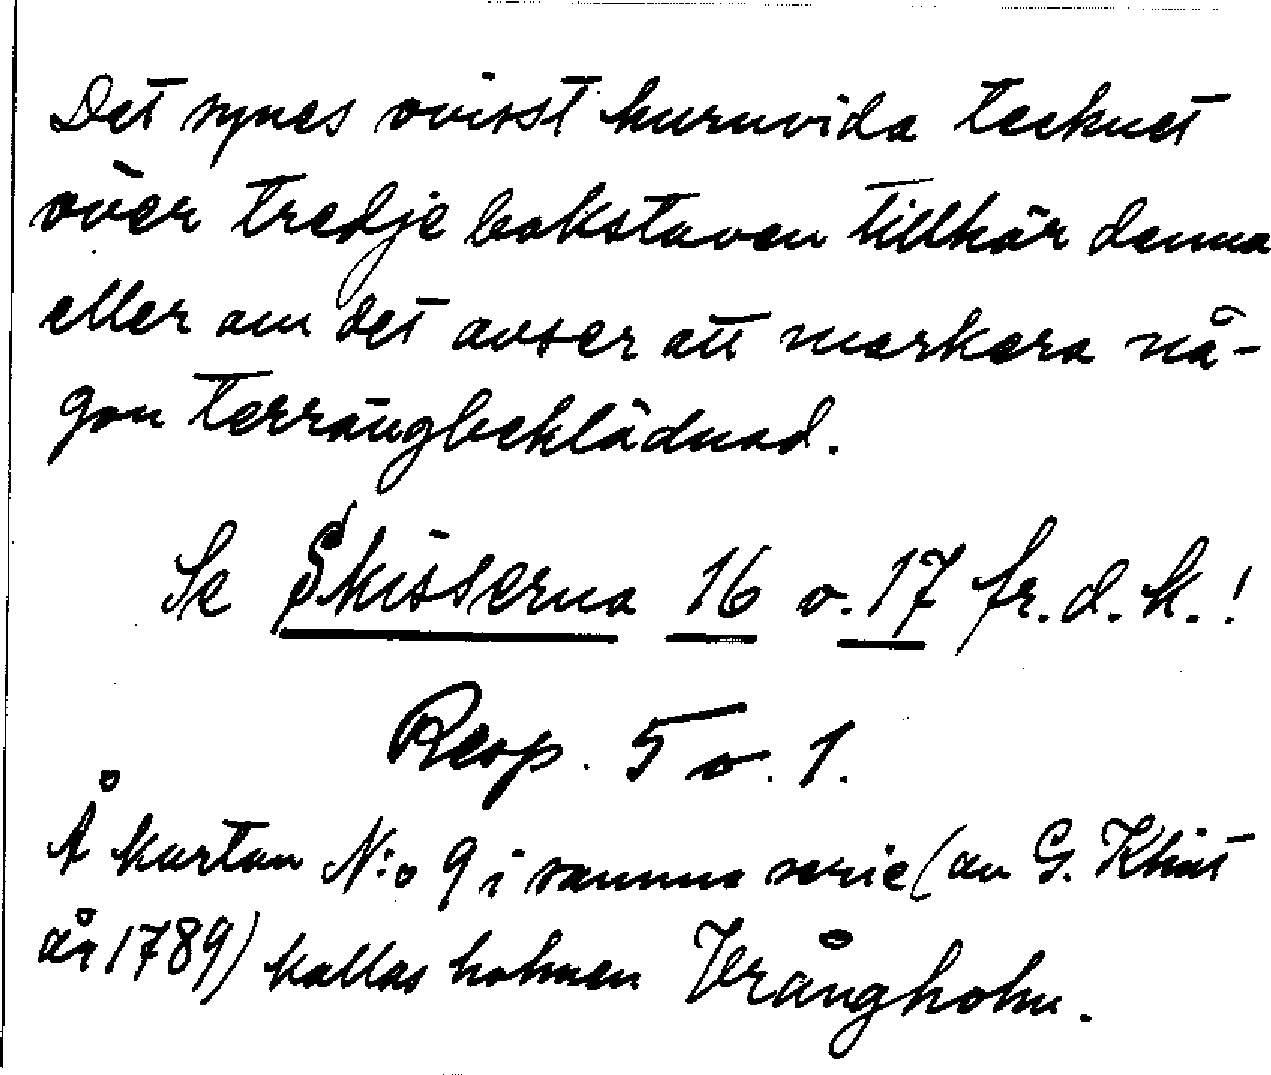 Det synes ovisst huruvida tecknet
över tredje bokstaven tillhör denna
eller om det avser att markera nå-
gon terrängbeklädnad.
Se Skisserna 16 o. 17 fr. d. k.!
Resp. 5 o. 1.
Å kartan N:o 9 i samma serie (av G. Klint
år 1789) kallas holmen Vrångholm.